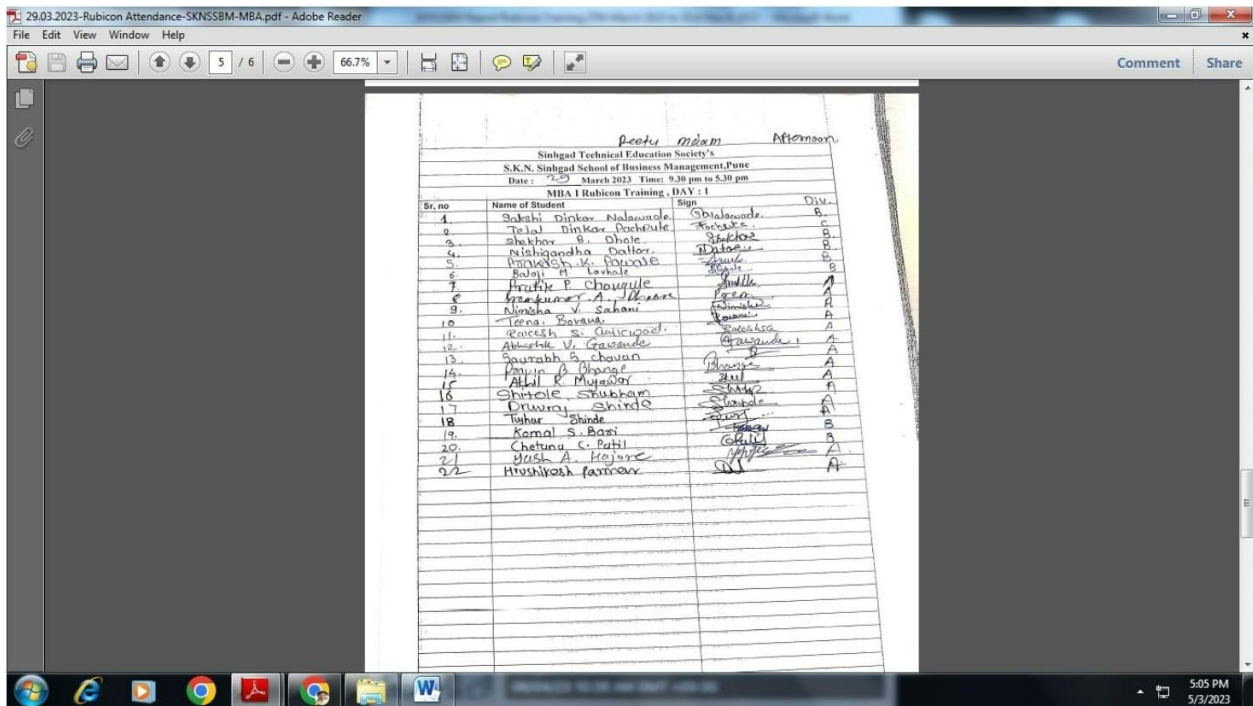 29.03.2023-Rubicon Attendance-SKNSSBM-MBA.pdf - Adobe Reader
File Edit View Window Help
5 / 6 66.7% Comment Share
Reetu mdam Afternoon
Sinhgad Technical Education Society's
S.K.N. Sinhgad School of Business Management,Pune
Date : 29 March 2023 Time: 9.30 pm to 5.30 pm
MBA I Rubicon Training , DAY : 1
Sr, no Name of Student Sign Div.
1. Sakshi Dinkar Nalawade B.
2. Tejal Dinkar Pachpute C
3. Shekhar B. Dhole Shekhar B.
4. Nishigandha B.
5. Prakash .K. B
6. Balaji M B
7. Pratik P Chougule A
8 Premkumar .A. Prem A
9. Nimisha V. Sahani Nimisha A
10 Teena. A
11. S. A
12. V. Gawande Gawande A
13. Saurabh S. chavan A
14. Pravin B Bhange Bhange A
15 R. Mujawar A
16 Shitole Shubham A
17 Shinde A
18 Tushar Shinde A
19. Komal S. B
20. C. Patil B
21 Yash A. Hajare A
22 Hrushikesh Parmar A
W
5:05 PM
5/3/2023